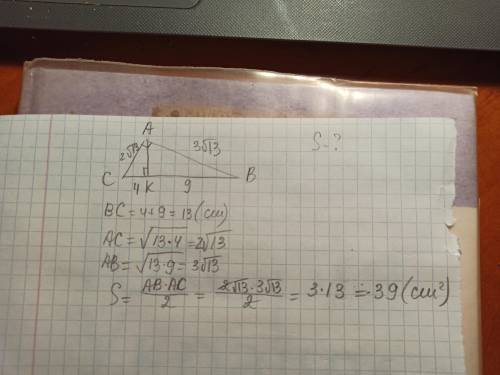 S-?
A
2√13
3√13
C
4
K
9
B
BC = 4+9 = 13 (cm)
AC = √13·4 = 2√13
AB = √13·9 = 3√13
S = AB·AC/2 = 2√13·3√13/2 = 3·13 = 39 (cm²)